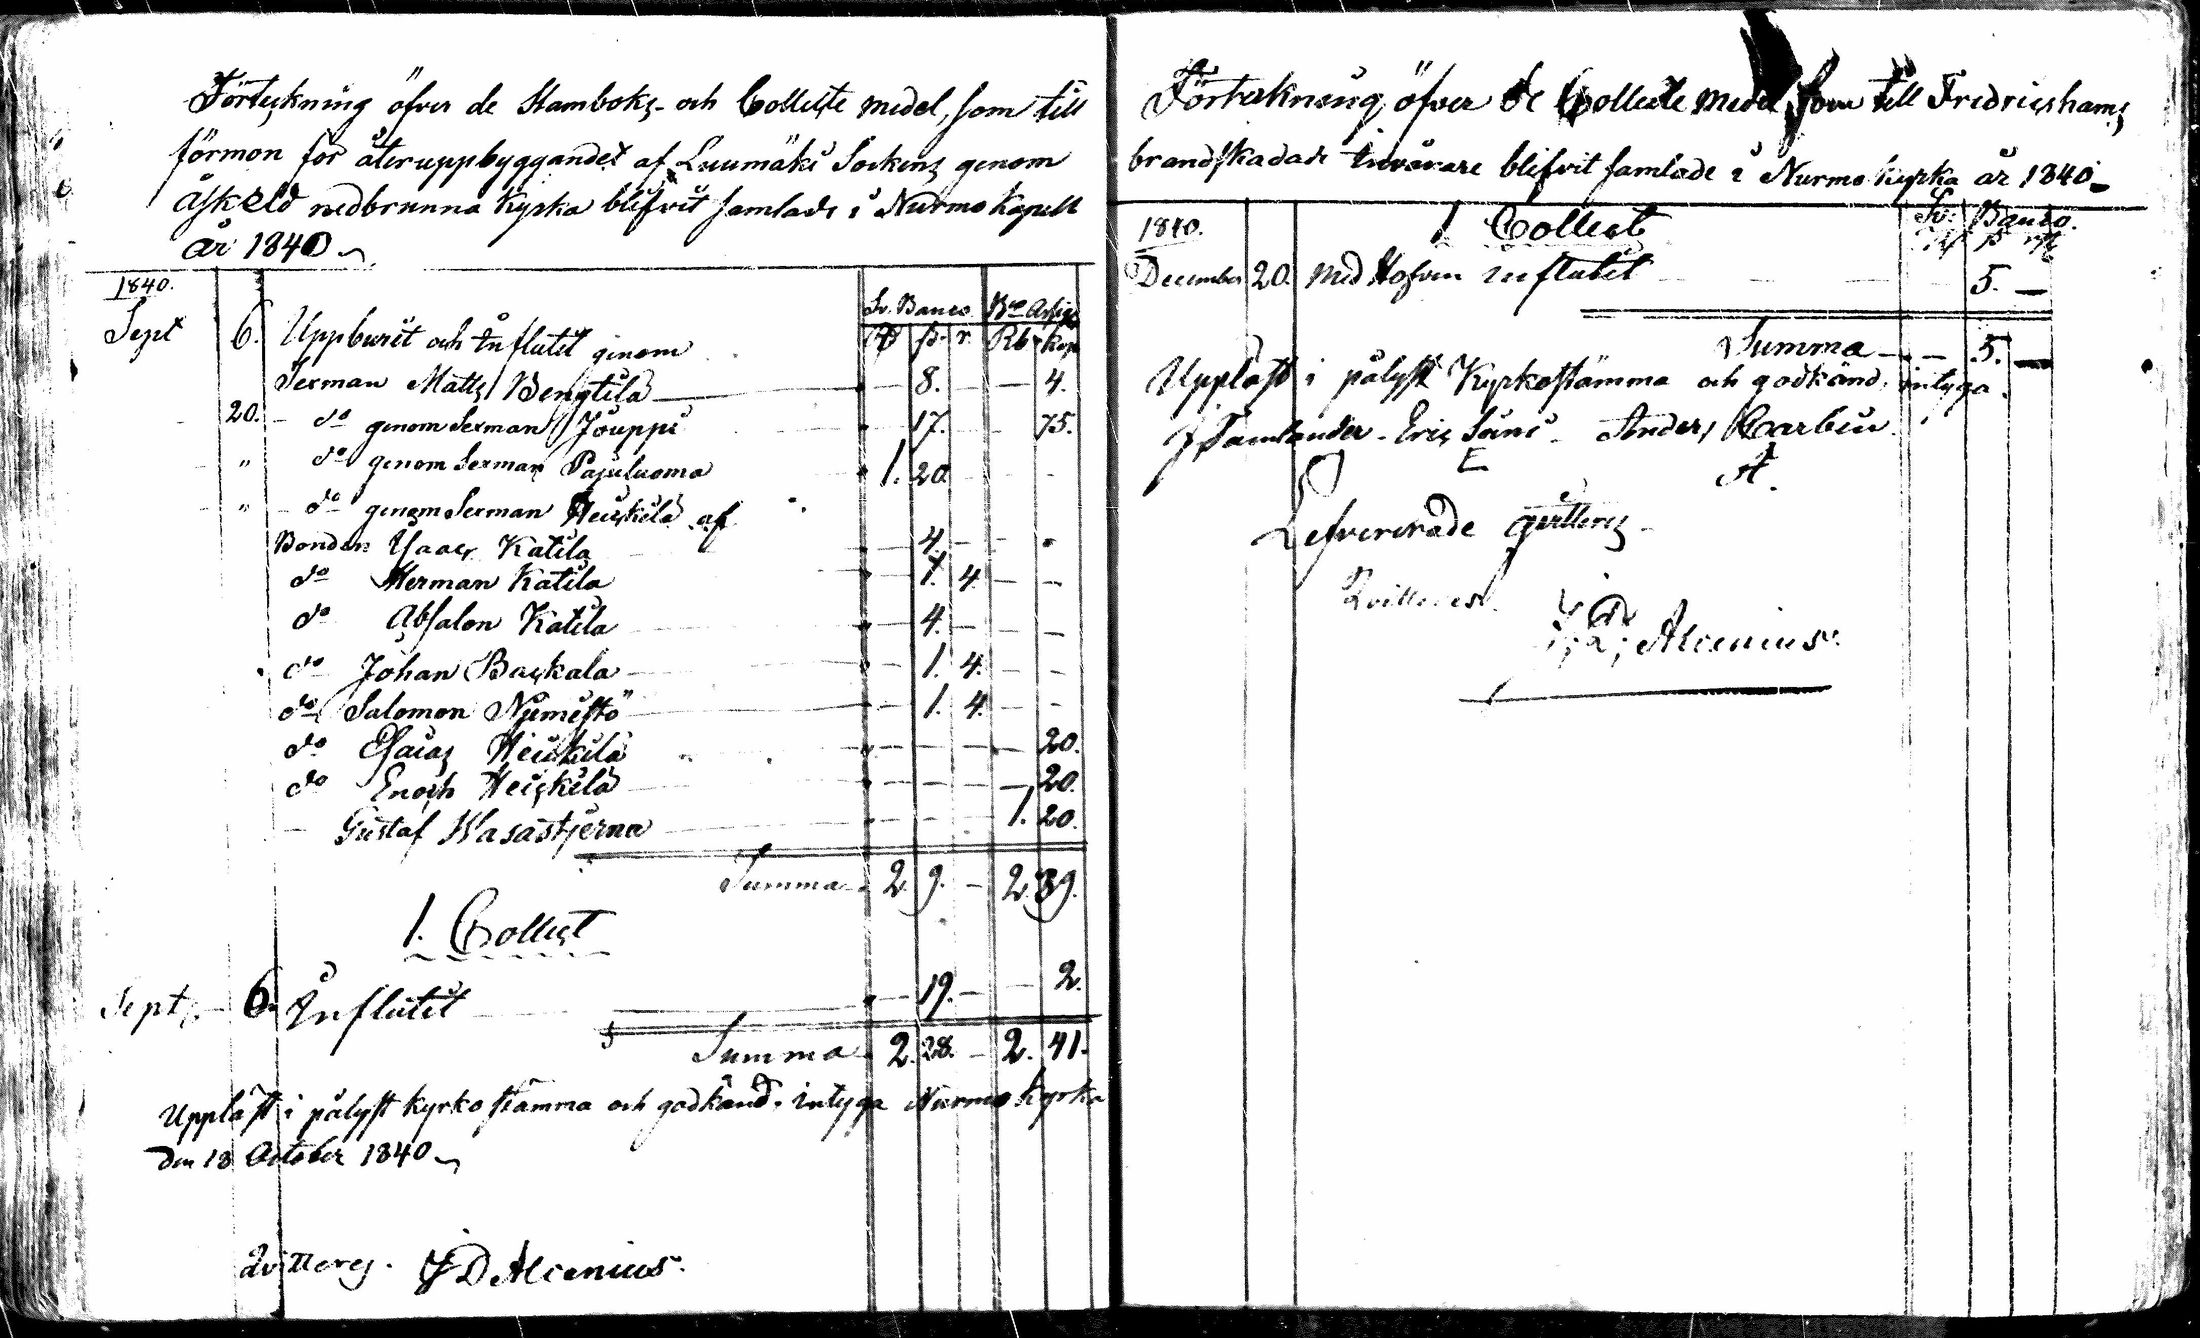 Förteckning öfver de Stamboks- och Collecte medel, som till
förmon för återuppbyggandet af Luumäki Sockens genom
åskeld nedbrunna Kyrka blifvit samlade i Nurmo Kapell
år 1840
1840.
Sv. Banco Bco Assign.
Sept 6. Uppburit och influtit genom Rd s. r. Rb. Kop
Sexman Matts Bengtila — 8. — — 4.
20. do genom Sexman Jouppi 17. 75.
" do genom Sexman Pajuluoma 1. 20. — — —
" do genom Sexman Heickilä af
Bonden Isaac Katila — 4. —
do Herman Katila — 1. 4. — —
do Absalon Katila — 4. — — —
do Johan Backala — 1. 4. — —
do Salomon Niemistö — 1. 4. — —
do Esaias Heickilä — — — — 20.
do Enoch Heickilä — — — — 20.
— Gustaf Wasastjerna — — — 1. 20.
Summa 2. 9. — 2. 39.
1. Collect
Sept. 6. Influtit — 19. — — 2.
Summa 2. 28. — 2. 41.
Uppläst i pålyst kyrkostämma och godkänd, intyga Nurmo Kyrka
den 18 October 1840
Qvitteras. J D Alcenius.
Förteckning öfver de Collecte medel som till Fredricshams
brandskadade invånare blifvit samlade i Nurmo kyrka år 1840
1840. 1 Collect Sv. Banco.
December 20. med Hofven influtit 5. —
Summa — — 5. —
Uppläst i pålyst Kyrkostämma och godkänd, intyga
Eric Soini Anders Carbin
E A.
Lefvererade qvitteras
Qvitteras.
J; D; Alcenius.